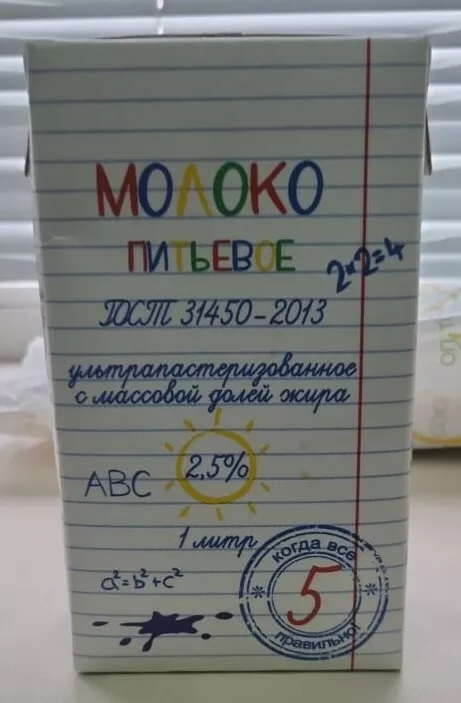 МОЛОКО
ПИТЬЕВОЕ
2×2=4
ГОСТ 31450-2013
ультрапастеризованное
с массовой долей жира
2,5%
ABC
1 литр
когда всё
5
правильно!
a²=b²+c²